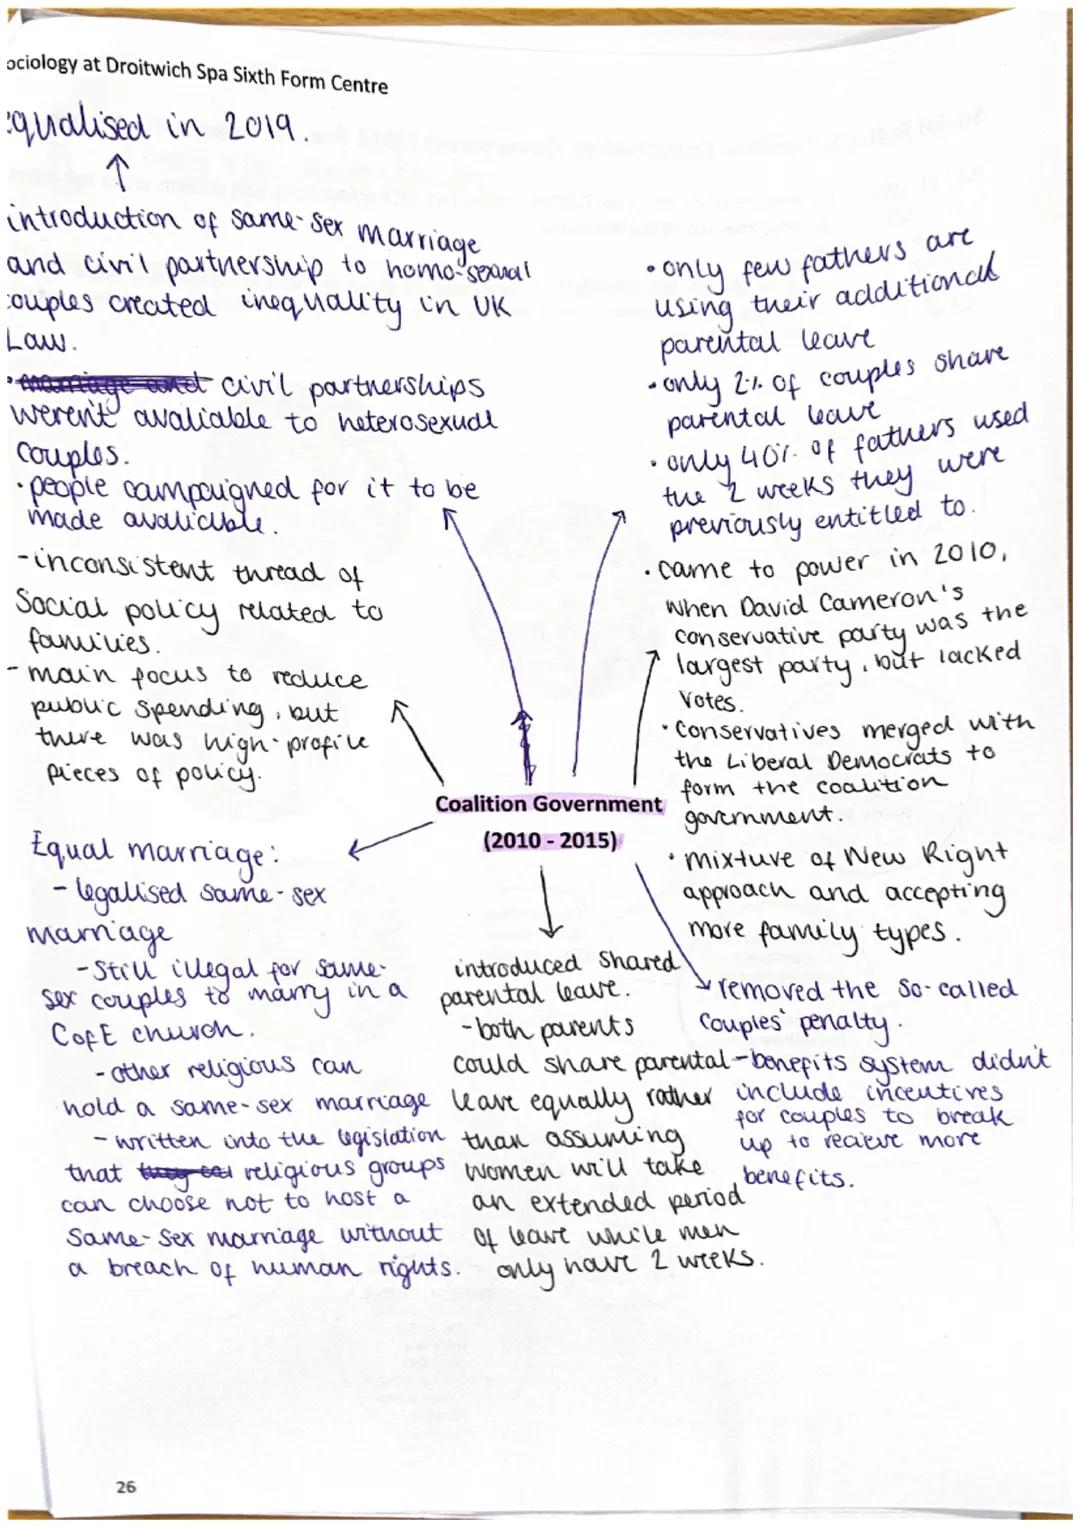 ociology at Droitwich Spa Sixth Form Centre
equalised in 2019.
introduction of same-sex marriage
and civil partnership to homo-sexual
couples created inequality in UK
Law.
civil partnerships
weren't avaliable to heterosexual
couples.
• people campaigned for it to be
made avaliable.
- inconsistent thread of
Social policy related to
families.
- main focus to reduce
public spending, but
there was high-profile
pieces of policy.
Equal marriage:
- legalised same-sex
marriage
- Still illegal for same-
sex couples to marry in a
CofE church.
- other religious can
hold a same-sex marriage
- written into the legislation
that religious groups
can choose not to host a
Same-Sex marriage without
a breach of human rights.
Coalition Government
(2010 - 2015)
introduced Shared
parental leave.
- both parents
could share parental
leave equally rather
than assuming
women will take
an extended period
of leave while men
only have 2 weeks.
• only few fathers are
using their additional
parental leave
• only 2% of couples share
parental leave
• only 40% of fathers used
the 2 weeks they were
previously entitled to.
• came to power in 2010,
when David Cameron's
conservative party was the
largest party, but lacked
votes.
• Conservatives merged with
the Liberal Democrats to
form the coalition
government.
• mixture of New Right
approach and accepting
more family types.
removed the so-called
Couples' penalty.
- benefits system didn't
include incentives
for couples to break
up to recieve more
benefits.
26